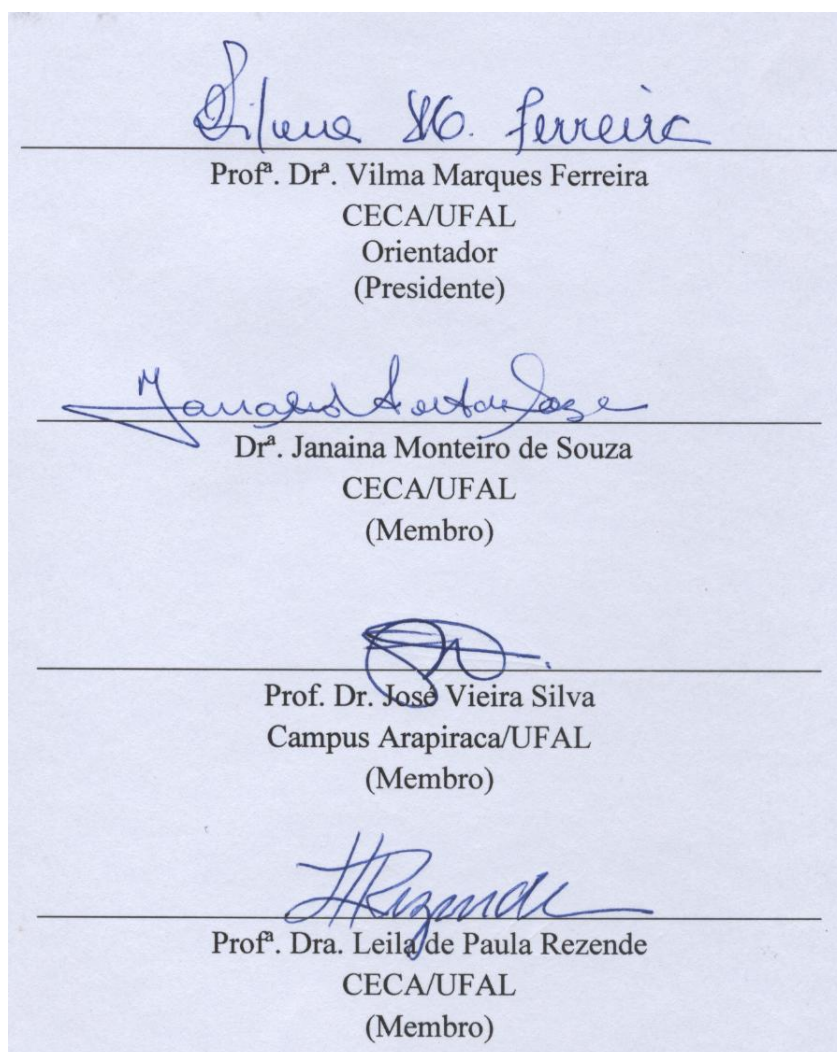 Vilma M. Ferreira
Profª. Drª. Vilma Marques Ferreira
CECA/UFAL
Orientador
(Presidente)
Drª. Janaina Monteiro de Souza
CECA/UFAL
(Membro)
Prof. Dr. José Vieira Silva
Campus Arapiraca/UFAL
(Membro)
Rezende
Profª. Dra. Leila de Paula Rezende
CECA/UFAL
(Membro)